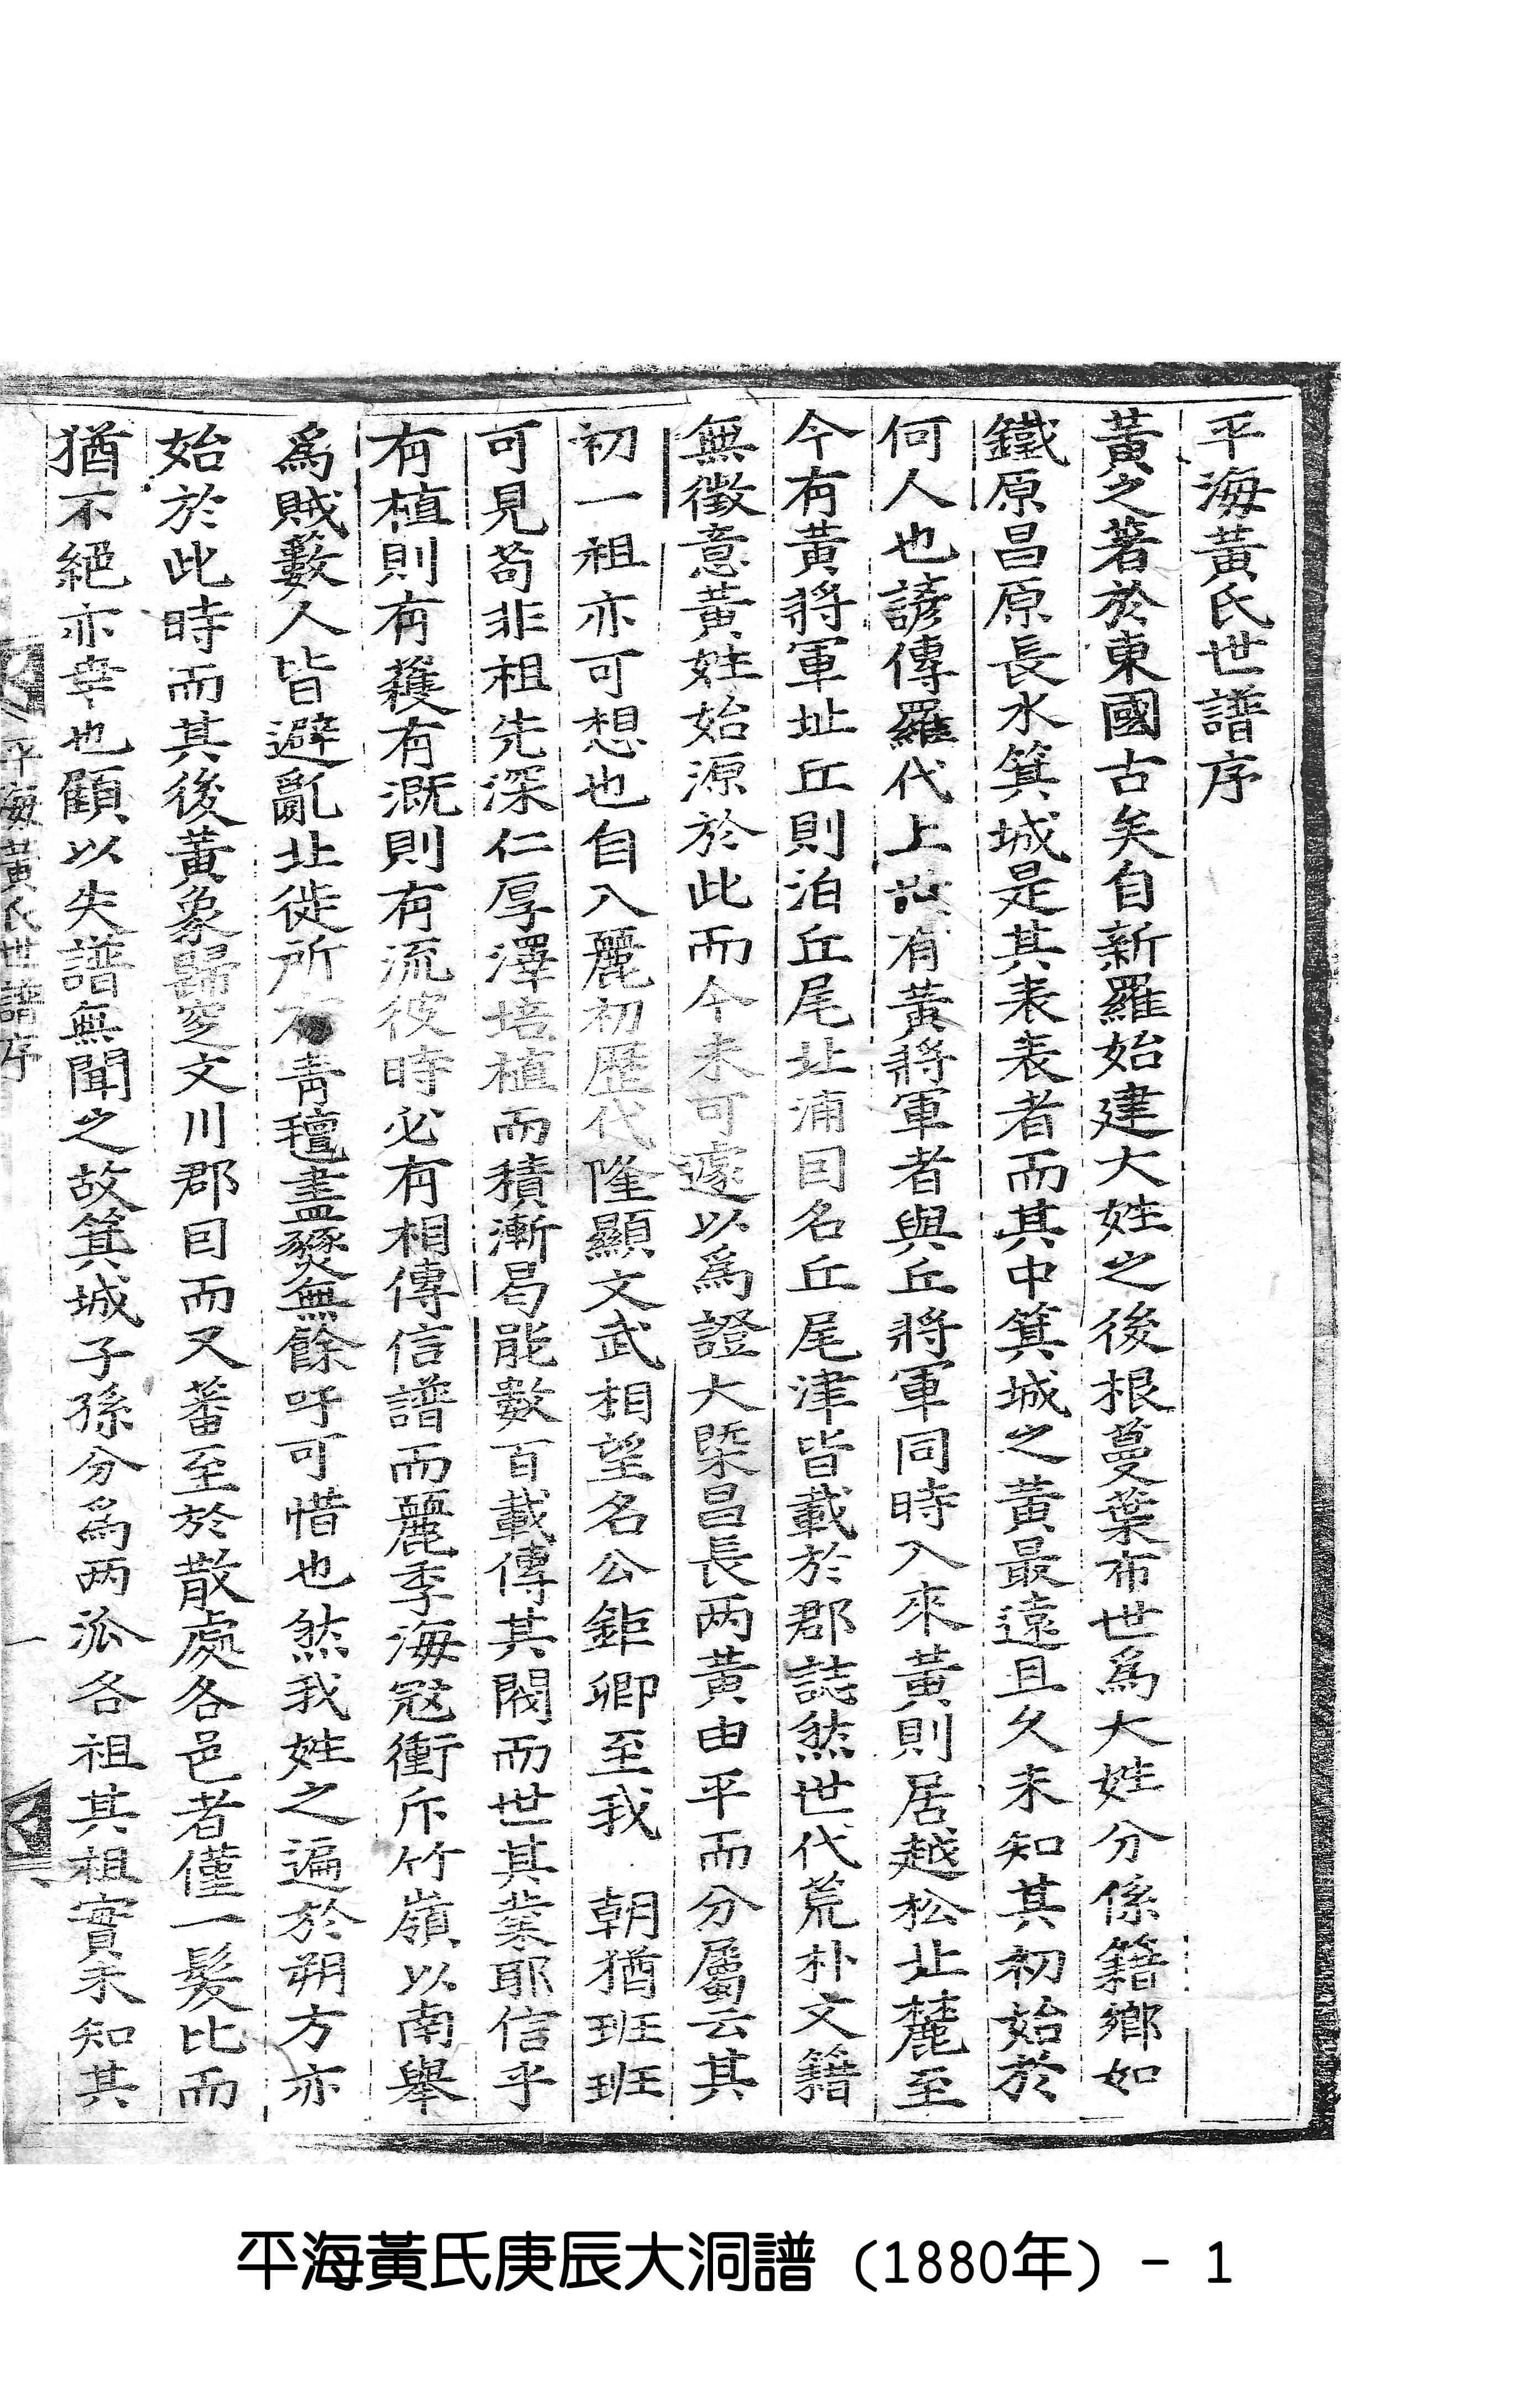 平海黃氏世譜序
黃之著於東國古矣自新羅始建大姓之後根蔓葉布世爲大姓分係籍鄉如
鐵原昌原長水箕城是其表表者而其中箕城之黃最遠且久未知其初始於
何人也諺傳羅代上世有黃將軍者與丘將軍同時入來黃則居越松北麓至
今有黃將軍址丘則泊丘尾北浦因名丘尾津皆載於郡誌然世代荒朴文籍
無徵意黃姓始源於此而今未可遽以爲證大槩昌長两黃由平而分屬云其
初一祖亦可想也自入麗初歷代隆顯文武相望名公鉅卿至我 朝猶班班
可見苟非祖先深仁厚澤培植而積漸曷能數百載傳其閥而世其業耶信乎
有植則有穫有漑則有流彼時必有相傳信譜而麗季海冦衝斥竹嶺以南舉
爲賊藪人皆避亂北徙所 青氊盡爇無餘吁可惜也然我姓之遍於朔方亦
始於此時而其後黃象歸定文川郡因而又蕃至於散處各邑者僅一髮比而
猶不絕亦幸也顧以失譜無聞之故箕城子孫分爲两派各祖其祖實未知其
平海黃氏世譜序
一
平海黃氏庚辰大洞譜 (1880年) - 1